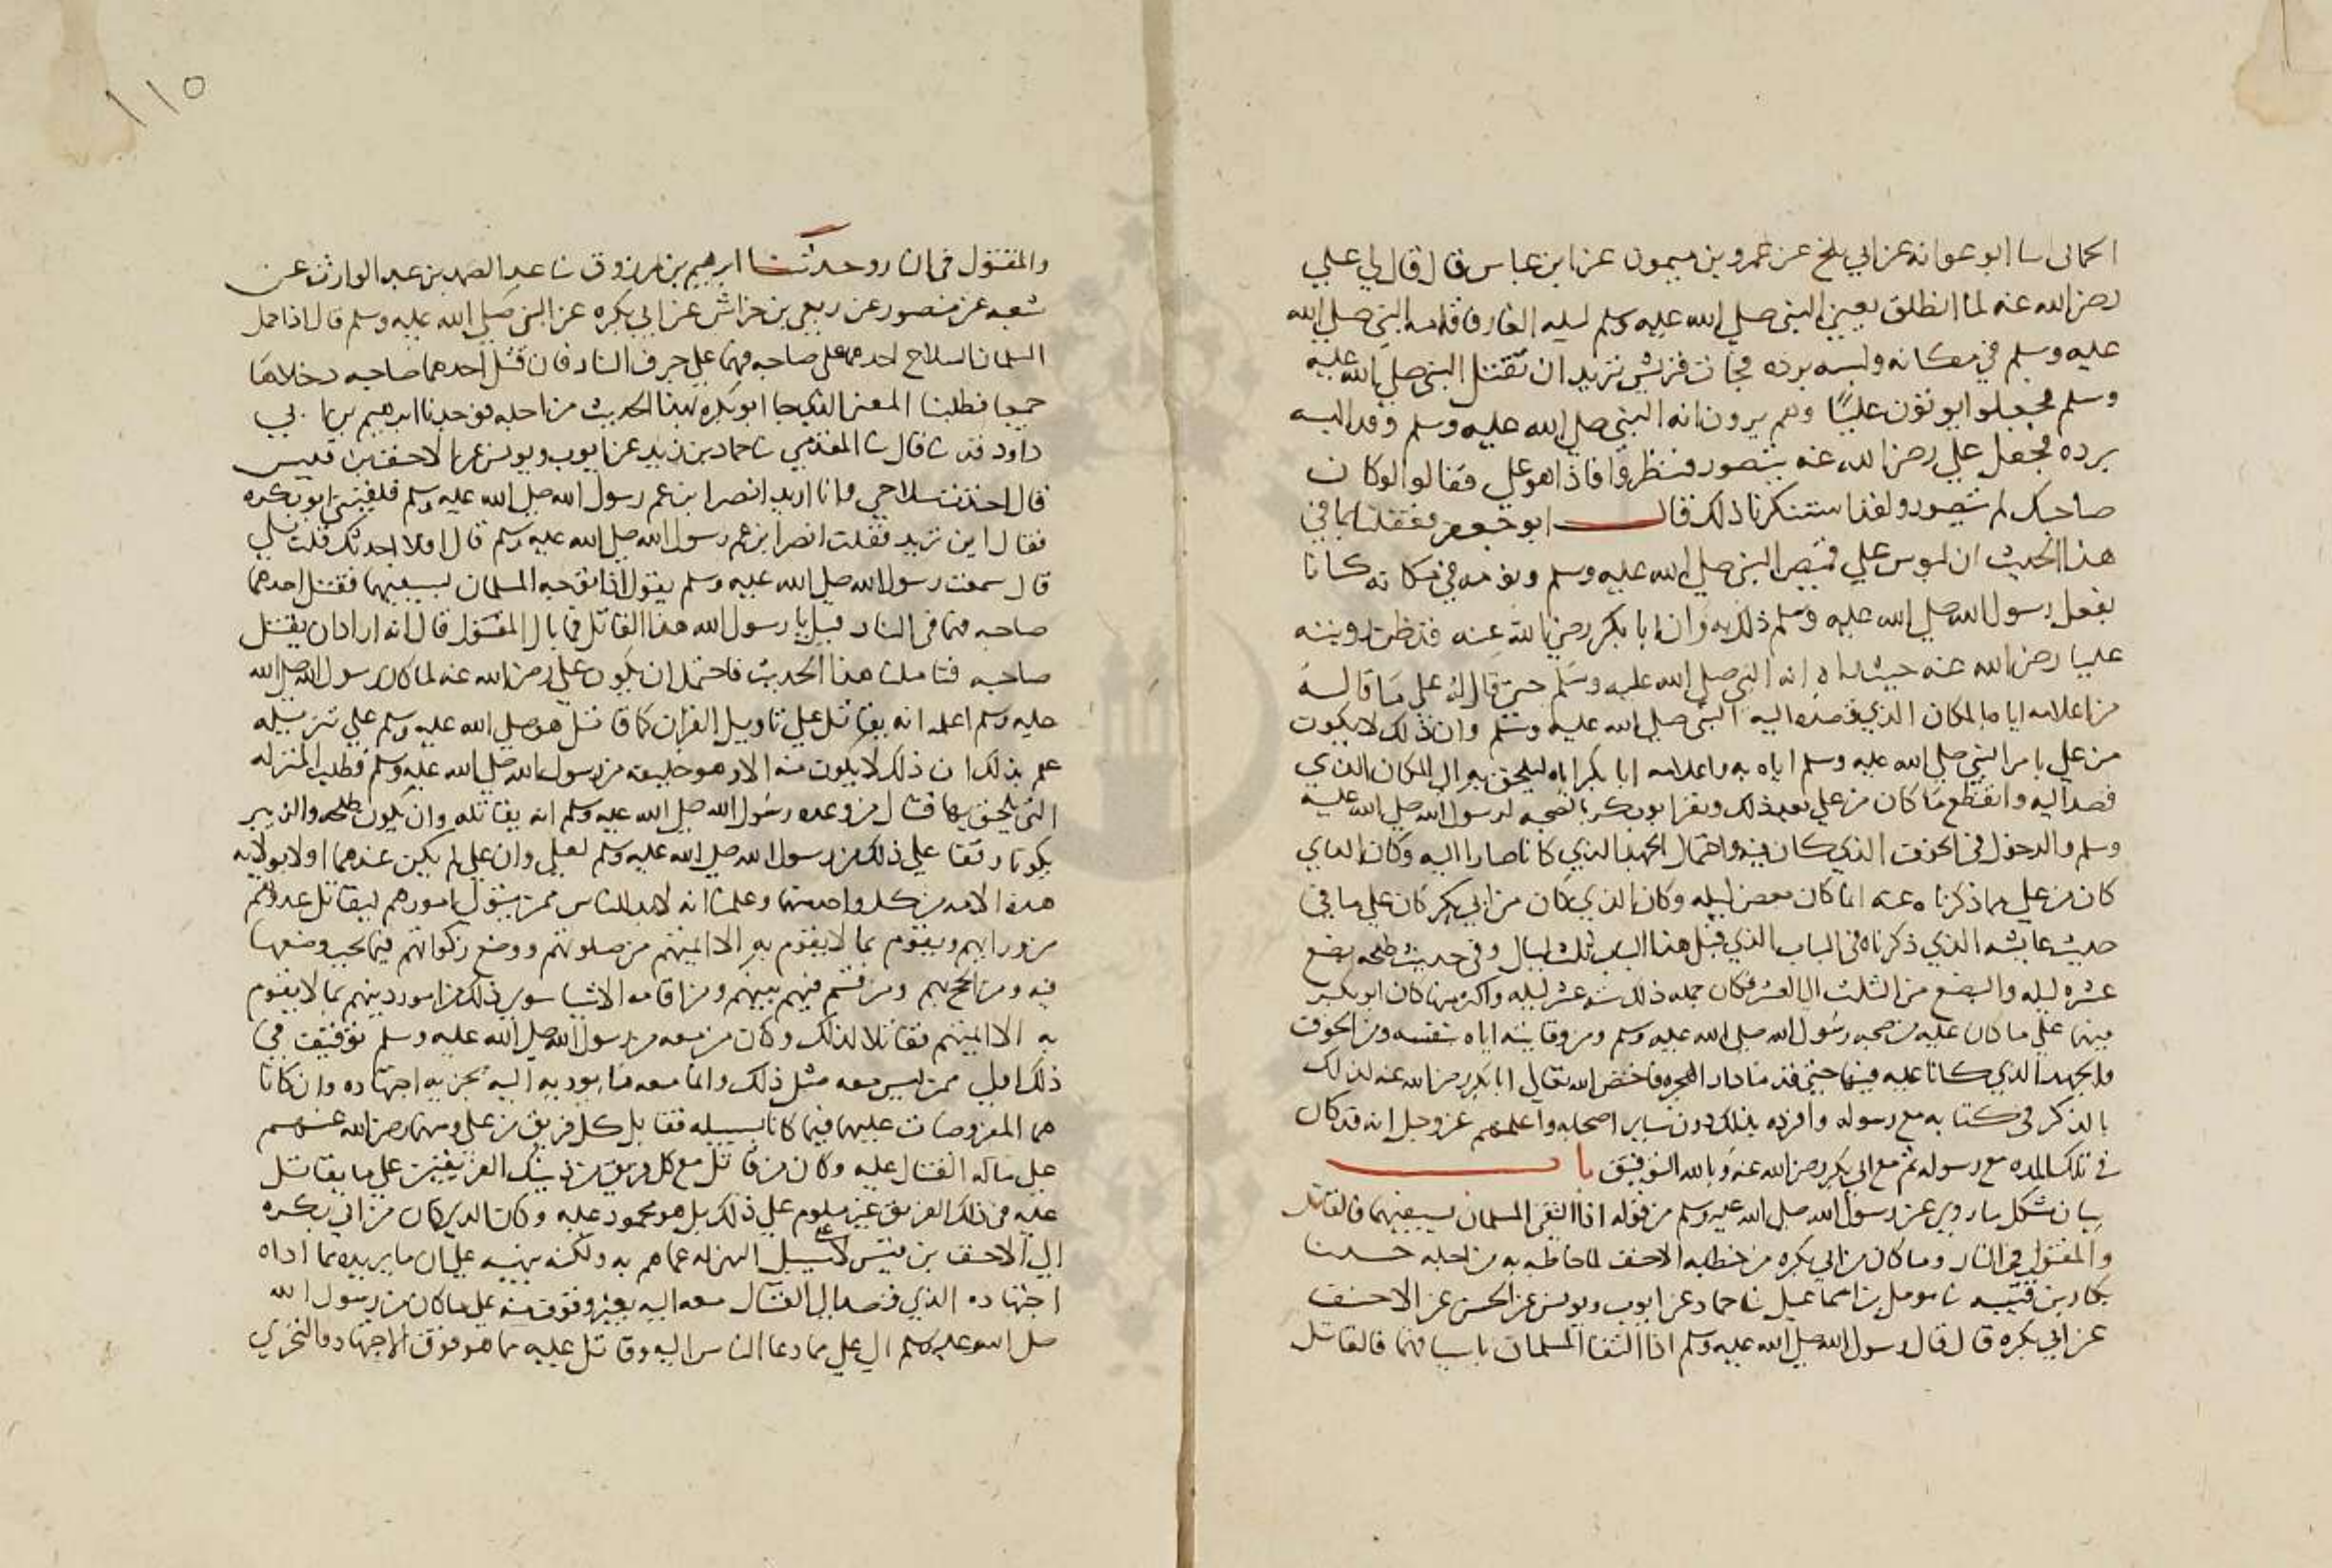 الحماني ثنا ابو عوانه عن ابي بلخ عن عمرو بن ميمون عن ابن عباس قال قال لي علي
رضي الله عنه لما انطلق يعني النبي صلى الله عليه وسلم ليله الغار فاقامه النبي صلى الله
عليه وسلم في مكانه والبسه برده فجات قريش تريد ان تقتل النبي صلى الله عليه
وسلم فجعلوا يرمون عليا وهم يرون انه النبي صلى الله عليه وسلم وقد البسه
برده فجعل علي رضي الله عنه يتضور فنظروا فاذا هو علي فقالوا لو كان
صاحبك لم يتضور ولقد استنكرنا ذلك قال ابو جعفر فعقلنا بما في
هذا الحديث ان لبوس علي قميص النبي صلى الله عليه وسلم ونومه في مكانه كانا
بفعل رسول الله صلى الله عليه وسلم ذلك به وان ابا بكر رضي الله عنه
عليا رضي الله عنه حيث انه النبي صلى الله عليه وسلم حتى قال له علي ما قاله
من اعلامه اياه بالمكان الذي قصد اليه النبي صلى الله عليه وسلم وان ذلك لا يكون
من علي الا بامر النبي صلى الله عليه وسلم اياه به واعلامه ابا بكر اياه ليلحق به الى المكان الذي
قصد اليه وانقطع ما كان من علي بعد ذلك وبقي ابو بكر بالصحبه لرسول الله صلى الله عليه
وسلم والدخول في الخوف الذي كان فيه واحتمال الجهد الذي كانا صارا اليه وكان الذي
كان من علي مما ذكرناه عنه انما كان بعض ليله وكان الذي كان من ابي بكر كان على ما في
حديث عايشه الذي ذكرناه في الباب الذي قبل هذا الباب ثلث ليال وفي حديث طلحه بضع
عشره ليله والبضع من الثلث الى العشر فكان جمله ذلك عشر ليله واكثر منها كان ابو بكر
فيها على ما كان عليه من صحبه رسول الله صلى الله عليه وسلم ومن وقايته اياه بنفسه ومن الخوف
والجهد الذي كانا عليه فيها حتى قدما دار الهجره فاختص الله تعالى ابا بكر رضي الله عنه لذلك
بالذكر في كتابه مع رسوله وافرده بذلك دون ساير اصحابه واعلمهم عز وجل انه قد كان
في تلك المده مع رسوله ثم مع ابي بكر رضي الله عنه وبالله التوفيق باب
بيان مشكل ما روي عن رسول الله صلى الله عليه وسلم من قوله اذا التقى المسلمان بسيفيهما فالقاتل
والمقتول في النار وما كان من ابي بكره من خطابه الاحنف لما خاطبه به من اجله حدثنا
بكار بن قتيبه ثنا مومل بن اسماعيل ثنا حماد عن ايوب ويونس عن الحسن عن الاحنف
عن ابي بكره قال قال رسول الله صلى الله عليه وسلم اذا التقا المسلمان باسيافهما فالقاتل
١١٥
والمقتول في النار وحدثنا ابرهيم بن مرزوق ثنا عبد الصمد بن عبد الوارث عن
شعبه عن منصور عن ربعي بن خراش عن ابي بكره عن النبي صلى الله عليه وسلم قال اذا حمل
المسلمان السلاح احدهما على صاحبه فهما على جرف النار فان قتل احدهما صاحبه دخلاها
جميعا فطلبنا المعنى الذي جا ابو بكره بهذا الحديث من اجله فوجدنا ابرهيم بن ابي
داود قد ثنا قال ثنا المقدمي ثنا حماد بن زيد عن ايوب ويونس عن الاحنف بن قيس
قال اخذت سلاحي وانا اريد انصر ابن عم رسول الله صلى الله عليه وسلم فلقيني ابو بكره
فقال اين تريد فقلت انصر ابن عم رسول الله صلى الله عليه وسلم قال افلا احدثك قلت بلى
قال سمعت رسول الله صلى الله عليه وسلم يقول اذا توجه المسلمان بسيفيهما فقتل احدهما
صاحبه فهما في النار قيل يا رسول الله هذا القاتل فما بال المقتول قال انه اراد ان يقتل
صاحبه فتاملنا هذا الحديث فاحتمل ان يكون علي رضي الله عنه لما كان رسول الله صلى الله
عليه وسلم اعلمه انه يقاتل على تاويل القران كما قاتل هو صلى الله عليه وسلم على تنزيله
علم بذلك ان ذلك لا يكون منه الا وهو خليفه من رسول الله صلى الله عليه وسلم فطلب المنزله
التي يلحق بها قتال من وعده رسول الله صلى الله عليه وسلم انه يقاتله وان يكون طلحه والزبير
يكونا وقفا على ذلك من رسول الله صلى الله عليه وسلم لعلي وان علي لم يكن عندهما اولا بولايه
هذه الامه من كل واحد منهما وعلما انه لا بد للناس ممن يتولى امورهم ليقاتل عدوهم
من ورايهم ويقوم بما لا يقوم به الا ايمتهم من صلوتهم ووضع زكواتهم فيما يجب وضعها
فيه ومن الحج بهم ومن قسم فيهم بينهم ومن اقامه الاشيا سوى ذلك من امور دينهم بما لا يقوم
به الا ايمتهم فقاتلا لذلك وكان من معه من رسول الله صلى الله عليه وسلم توقيف في
ذلك اولى ممن ليس معه مثل ذلك وانما معه ما يوديه اليه تحريه اجتهاده وان كانا
هما المفروضان عليهما فيما كانا بسبيله فقابل كل فريق من علي ومنهما رضي الله عنهم
على ماله القتال عليه وكان من قاتل مع كل فريق من ذينك الفريقين على ما يقاتل
عليه في ذلك الفريق غير ملوم على ذلك بل هو محمود عليه وكان الذي كان من ابي بكره
الى الاحنف بن قيس لا على سبيل المنزله عما هم به ولكنه ينبيه على ان ما يريده مما اداه
اجتهاده الذي قصد الى القتال معه اليه بغير وقوف منه على ما كان من رسول الله
صلى الله عليه وسلم الى علي مما دعا الناس اليه وقاتل عليه مما هو فوق الاجتهاد والتحري